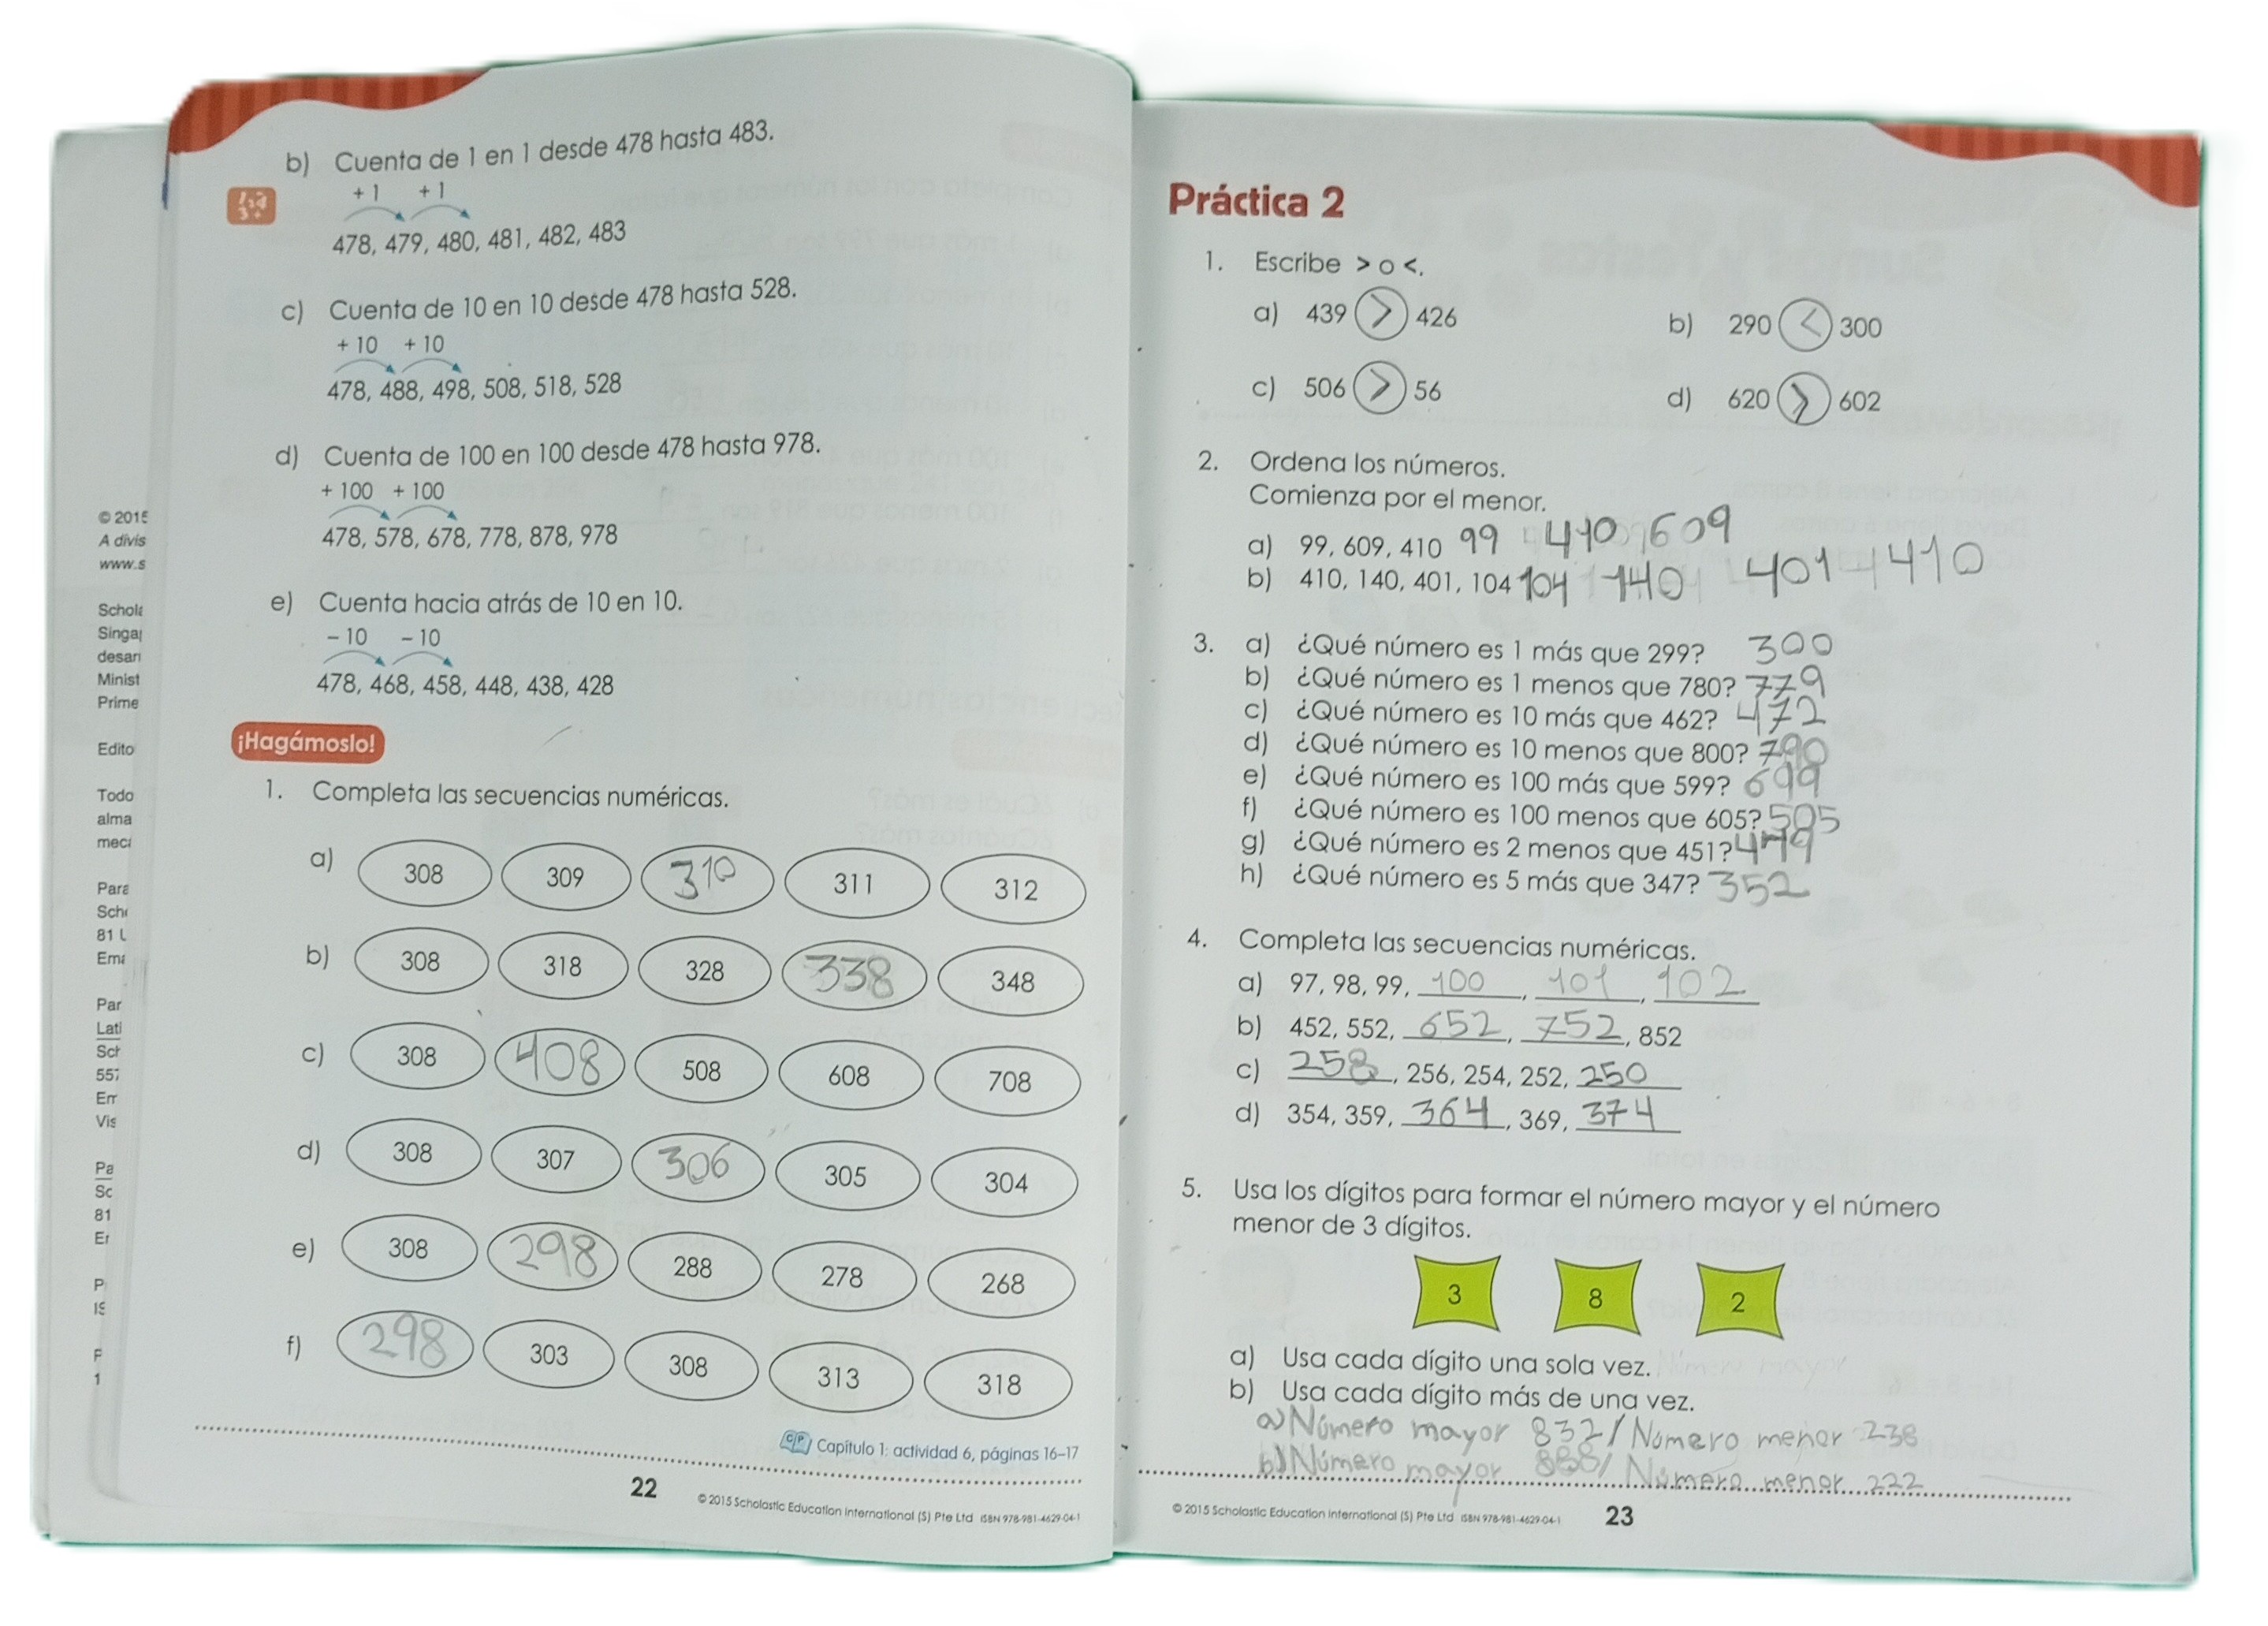 b) Cuenta de 1 en 1 desde 478 hasta 483.
+ 1 + 1
478, 479, 480, 481, 482, 483
c) Cuenta de 10 en 10 desde 478 hasta 528.
+ 10 + 10
478, 488, 498, 508, 518, 528
d) Cuenta de 100 en 100 desde 478 hasta 978.
+ 100 + 100
478, 578, 678, 778, 878, 978
e) Cuenta hacia atrás de 10 en 10.
– 10 – 10
478, 468, 458, 448, 438, 428
¡Hagámoslo!
1. Completa las secuencias numéricas.
a) 308 309 310 311 312
b) 308 318 328 338 348
c) 308 408 508 608 708
d) 308 307 306 305 304
e) 308 298 288 278 268
f) 298 303 308 313 318
Capítulo 1: actividad 6, páginas 16–17
22
© 2015 Scholastic Education International (S) Pte Ltd ISBN 978-981-4629-04-1
Práctica 2
1. Escribe > o <.
a) 439 > 426 b) 290 < 300
c) 506 > 56 d) 620 > 602
2. Ordena los números.
Comienza por el menor.
a) 99, 609, 410 99 410 609
b) 410, 140, 401, 104 104 140 401 410
3. a) ¿Qué número es 1 más que 299? 300
b) ¿Qué número es 1 menos que 780? 779
c) ¿Qué número es 10 más que 462? 472
d) ¿Qué número es 10 menos que 800? 790
e) ¿Qué número es 100 más que 599? 699
f) ¿Qué número es 100 menos que 605? 505
g) ¿Qué número es 2 menos que 451?
h) ¿Qué número es 5 más que 347? 352
4. Completa las secuencias numéricas.
a) 97, 98, 99, 100, 101, 102
b) 452, 552, 652, 752, 852
c) 258, 256, 254, 252, 250
d) 354, 359, 364, 369, 374
5. Usa los dígitos para formar el número mayor y el número
menor de 3 dígitos.
3 8 2
a) Usa cada dígito una sola vez. Número mayor
b) Usa cada dígito más de una vez.
a) Número mayor 832 / Número menor 238
b) Número mayor 888 / Número menor 222
© 2015 Scholastic Education International (S) Pte Ltd ISBN 978-981-4629-04-1
23
© 2015
A divis
www.s
Edito
Todo
alma